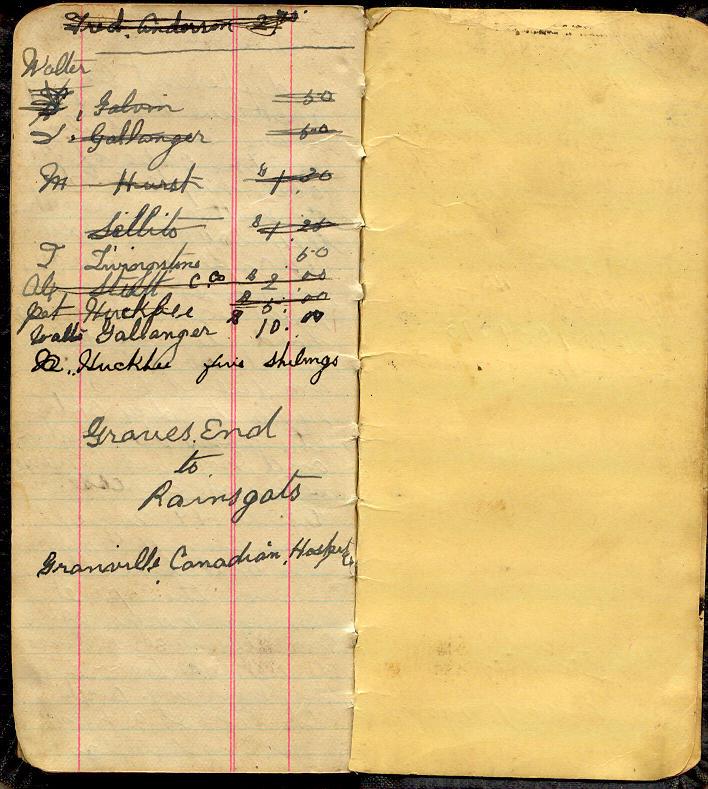 Fred. Anderson 2
Walter
Galvin 50
Gallanger 60
M Hurst $1.30
Sillito $1.25
T Livingstone 50
C.Co $2.00
pat Huckfiee $5.00
Gallanger $10.00
Huckfiee five shilings
Graves. End
to
Rainsgats
Granville Canadian. Hospit